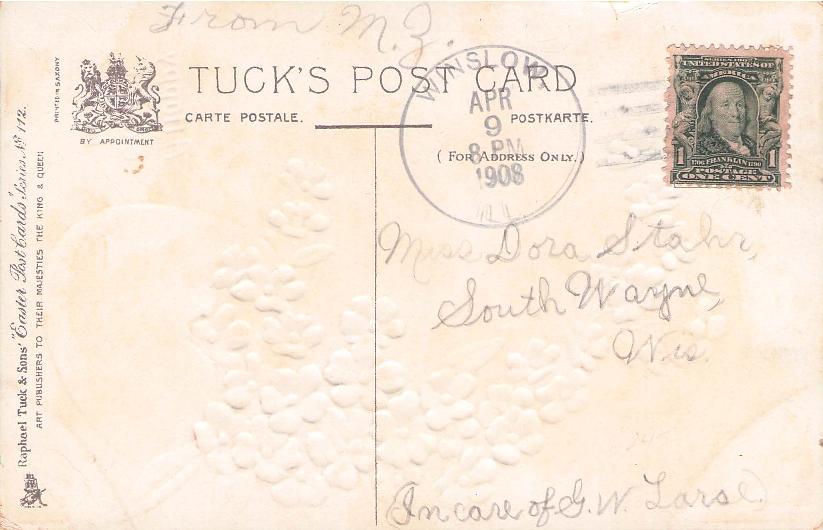 From M. Z.
TUCK'S POST CARD
CARTE POSTALE.
POSTKARTE.
(FOR ADDRESS ONLY.)
BY APPOINTMENT
PRINTED IN SAXONY
Raphael Tuck & Sons' "Easter" Post Cards Series No 112.
ART PUBLISHERS TO THEIR MAJESTIES THE KING & QUEEN
WINSLOW,
APR
9
8-PM
1908
ILL.
SERIES 1902
UNITED STATES OF
AMERICA
1 1
1706 FRANKLIN 1790
POSTAGE
ONE CENT
Miss Dora Stahr,
South Wayne,
Wis.
In care of G. W.